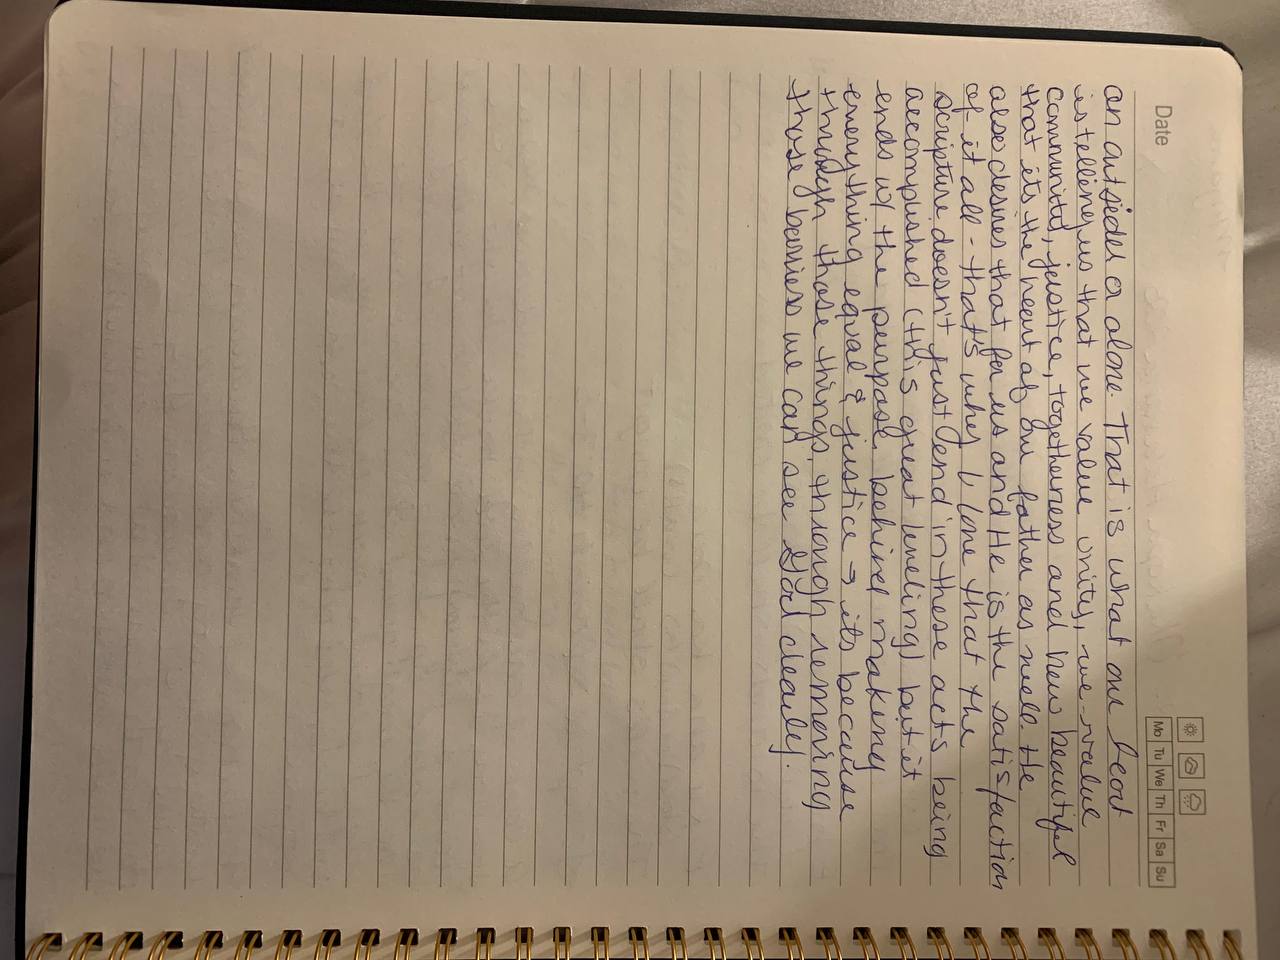 Date
Mo Tu We Th Fr Sa Su
an outsider or alone. That is what our heart
is telling us that we value unity, we value
community, justice, togetherness and how beautiful
that its the heart of our father as well. He
also desires that for us and He is the satisfaction
of it all - that's why I love that the
scripture doesn't just end in these acts being
accomplished (this great leveling) but it
ends w/ the purpose behind making
everything equal & justice → its because
through those things, through removing
those barriers we can see God clearly.